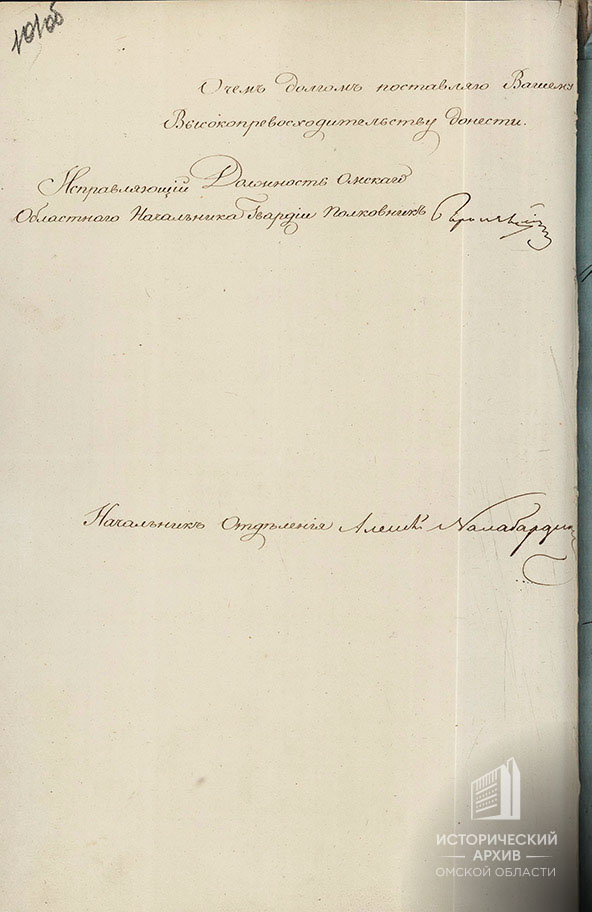 101об
О чемъ долгомъ поставляю Вашему
Высокопревосходительству донести.
Исправляющій Должность Омскаго
Областного Начальника Гвардіи Полковникъ
Начальникъ Отдѣленія Алексѣй
ИСТОРИЧЕСКИЙ
АРХИВ
ОМСКОЙ ОБЛАСТИ